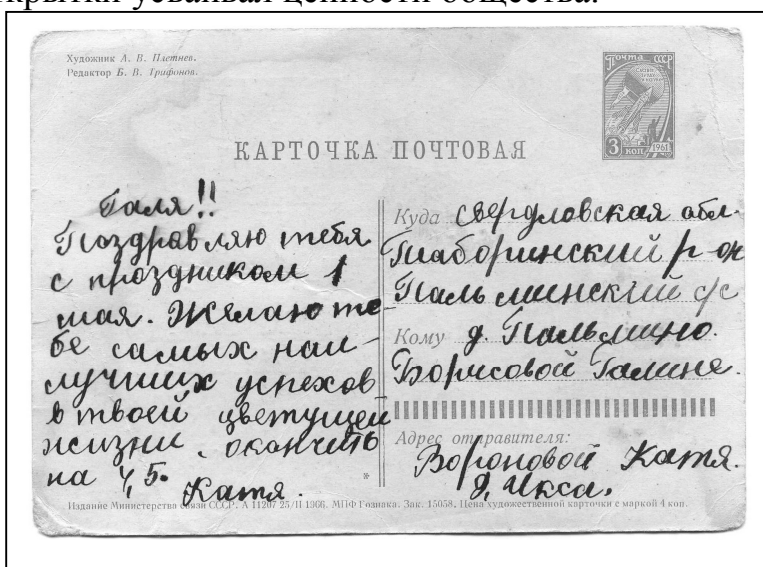 крытки усваивал ценности общества.
Художник А. В. Плетнев.
Редактор Б. В. Трифонов.
Почта СССР
3 коп 1961
КАРТОЧКА ПОЧТОВАЯ
Галя!!
Поздравляю тебя
с праздником 1
мая. Желаю те-
бе самых наи-
лучших успехов
в твоей цветущей
жизни, окончить
на 4, 5.
Катя.
*
Куда Свердловская обл.
Таборинский р-он
Пальминский с/с
Кому д. Пальмино.
Борисовой Галине.
Адрес отправителя:
Вороновой Катя.
д. Икса.
Издание Министерства связи СССР. А 11207 25/II 1966. МПФ Гознака. Зак. 15058. Цена художественной карточки с маркой 4 коп.